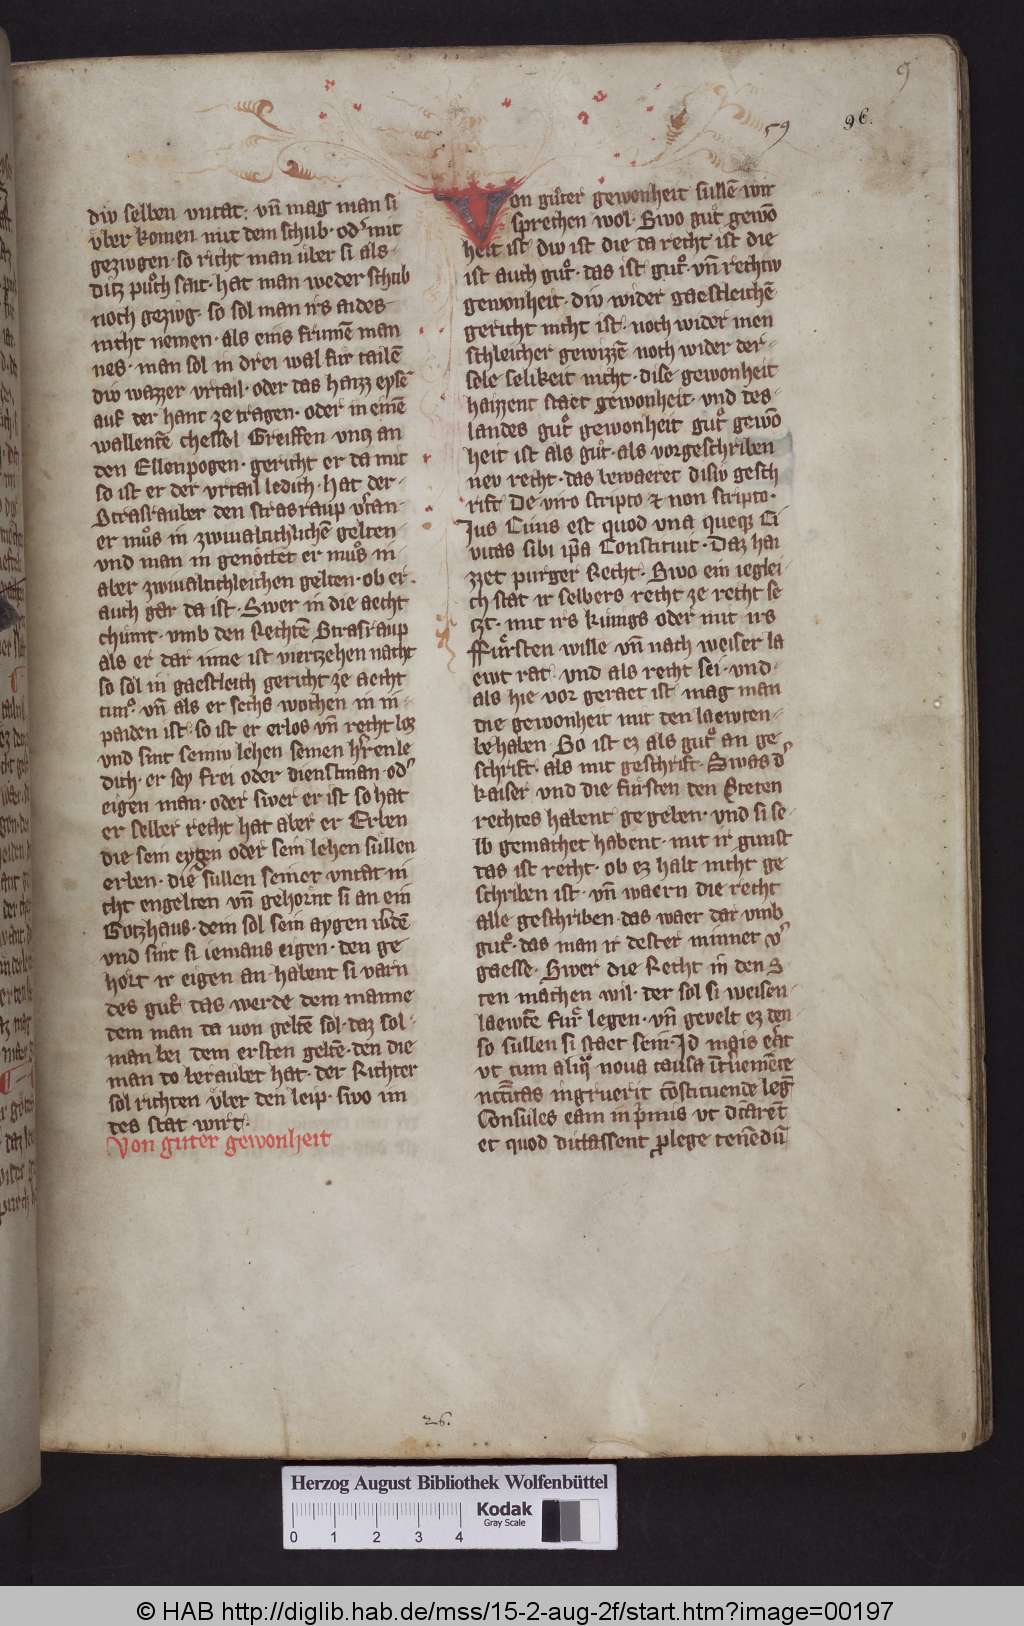 9
59
96.
diw selben vntat. vn̄ mag man si
v̊ber komen mit dem schub. od᷑ mit
gezwgen. so richt man v̊ber si als
ditz půch sait. hat man weder schub
noch gezwg. so sol man irs aides
nicht nemen. als eins frumē man
nes. man sol in drei wal für tailē
diw wazzer vrtail. oder das haizz eysē
auf der hant ze tragen. oder in einē
wallentē chessel Greiffen vntz an
den Ellenpogen. gericht er da mit
so ist er der vrtail ledich. hat der
Strasrauber den strasraup v᷑tan
er můs in zwiualtichlichē gelten
vnd man in genöttet er můs in
aber zwiualtichleichen gelten. ob er
auch gar da ist. Swer in die aecht
chumt. vmb den Rechtē Strasraup
als er dar inne ist viertzehen nacht
so sol in gaestleich gericht ze aecht
tun. vn̄ als er sechs wochen in in
paiden ist. so ist er erlos vn̄ recht loz
vnd sint seiniw lehen seinen h᷑ren le
dich. er sey frei oder dienstman. od᷑
eigen man. oder swer er ist so hat
er selber recht hat aber er Erben
die sein eygen oder sein lehen süllen
erben. die süllen seiner vntat ni
cht engelten vn̄ gehornt si an ein
Gotzhaus. dem sol sein aygen w᷑dē
vnd sint si iemans eigen. den ge
hört ir eigen an. habent si varn
des gůt. das werde dem manne
dem man da uon geltē sol. daz sol
man bei dem ersten geltē. den die
man do beraubet hat. der Richter
sol richten v̊ber den leip. swo im
des stat wirt.
Von guter gewonheit
Von gůter gewonheit sullē wir
sprechen wol. Swo gůt gewō
heit ist diw ist die da recht ist die
ist auch gůt. das ist gůt. vn̄ rechtiv
gewonheit. diw wider gaestleichē
gericht nicht ist. noch wider men
schleicher gewizzē noch wider der
sele selikeit nicht. dise gewonheit
haizzent staet gewonheit. vnd des
landes gůt gewonheit gůt gewō
heit ist als gůt. als vorgeschriben
nev recht. das bewaeret disiv gesch
rift De viro scripto & non scripto.
Ius Ciuis est quod vna queq; Ci
vitas sibi ip̄a Constituit. Daz hai
zzet purger Recht. Swo ein ieglei
ch stat ir selbers recht ze recht se
czt. mit irs kunigs oder mit irs
Fůrsten wille vn̄ nach weiser la
ewt rat. vnd als recht sei. vnd
als hie vor geraet ist mag man
die gewonheit mit den laewten
behaben. So ist ez als gůt an ge
schrift. als mit geschrift. Swas d᷑
kaiser vnd die fursten den Steten
rechtes habent gegeben. vnd si se
lb gemachet habent. mit ir gunst
das ist recht. ob ez halt nicht ge
schriben ist. vn̄ waern die recht
alle geschriben. das waer dar vmb
gůt. das man ir dester minner v᷑
gaesse. Swer die Recht in den S
ten machen wil. der sol si weisen
laewtē fůr legen. vn̄ gevelt ez den
so sullen si staet sein. Id mais erat
vt cum aliqͦ noua causa
ingruerit cōstituende leg᷑
Consules eam in p̄mis vt
et quod dictassent ꝓlege tenēdū
26.
Herzog August Bibliothek Wolfenbüttel
Kodak
Gray Scale
0 1 2 3 4
© HAB http://diglib.hab.de/mss/15-2-aug-2f/start.htm?image=00197